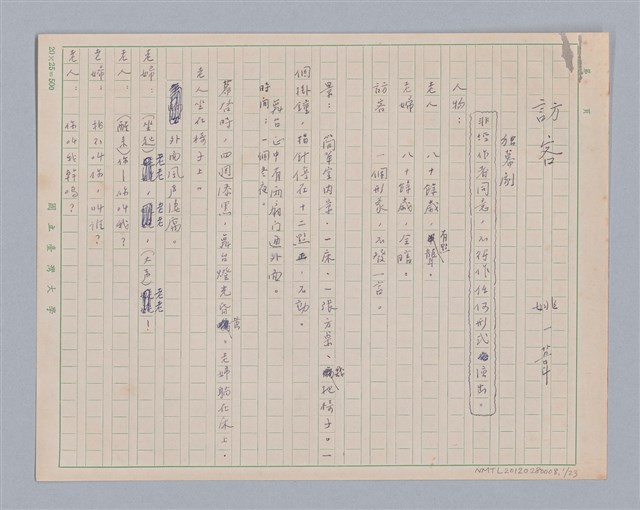 訪客
姚一葦
獨幕劇
非經作者同意，不得作任何形式演出。
人物：
老人　八十餘歲，有點聾。
老婦　八十餘歲，全瞎。
訪者　一個形象，不發一言。
景：簡單室內景。一床、一張方桌、幾把椅子。一
個掛鐘，指針停在十二點，不動。
舞台正中有兩扇門通外面。
時間：一個冬夜。
幕啟時，四週漆黑，舞台燈光昏黃。老婦躺在床上，
老人坐在椅子上。
外面風聲淒厲。
老婦：（坐起）老老，老老，（大聲）老老！
老人：（醒來）你—你叫我？
老婦：我不叫你，叫誰？
老人：你叫我幹嗎？
第　頁
20×25=500
國立臺灣大學
NMTL20120280008, 1/23